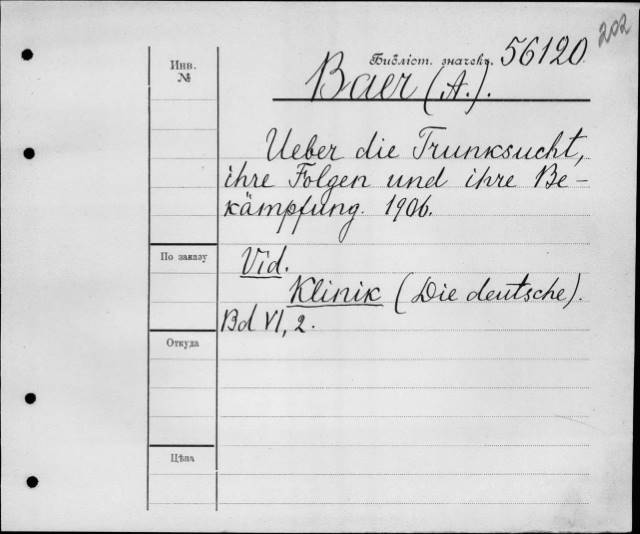 202
Библіот. значекъ. 56120
Инв.
№
Baer (A.).
Ueber die Trunksucht,
ihre Folgen und ihre Be-
kämpfung. 1906.
По заказу
Vid.
Klinik (Die deutsche).
Bd VI, 2.
Откуда
Цѣна